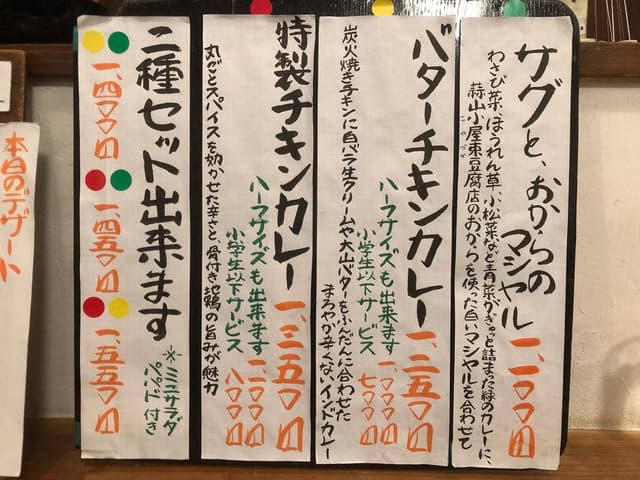 サグと、おからのマシヤル 一、一〇〇円
わさび菜、ほうれん草、小松菜など青菜がぎゅっと詰まった緑のカレーに、
蒜山小屋束豆腐店のおからを使った白いマシヤルを合わせて
こやづか
バターチキンカレー 一、二五〇円
ハーフサイズも出来ます 一、〇〇〇円
小学生以下サービス 七〇〇円
炭火焼きチキンに白バラ生クリームや大山バターをふんだんに合わせた
まろやか辛くないインドカレー
特製チキンカレー 一、三五〇円
ハーフサイズも出来ます 一、一〇〇円
小学生以下サービス 八〇〇円
丸ごとスパイスを効かせた辛さと、骨付き地鶏の旨みが魅力
二種セット出来ます
※ミニサラダ
パパド付き
一、四〇〇円
一、四五〇円
一、五五〇円
本日のデザート